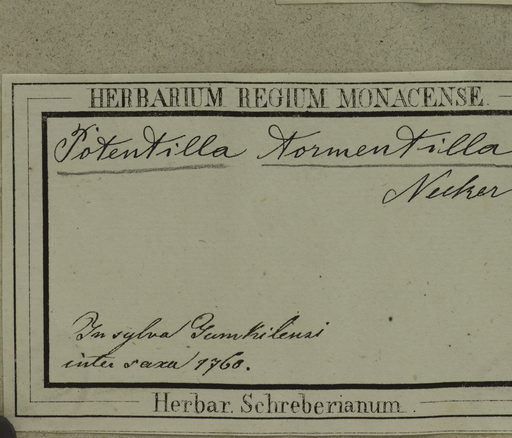 HERBARIUM REGIUM MONACENSE.
Potentilla tormentilla
Necker
In sylva Gamkilensi
inter saxa 1760.
Herbar. Schreberianum.